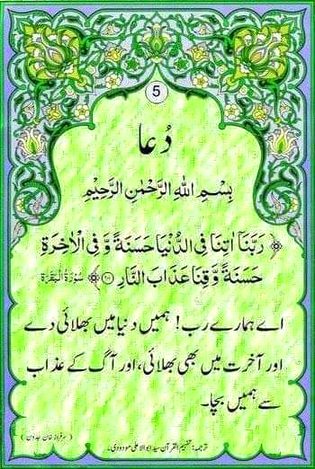 5
دُعا
بِسْمِ اللهِ الرَّحْمٰنِ الرَّحِیْمِ
﴿ رَبَّنَاۤ اٰتِنَا فِی الدُّنْیَا حَسَنَةً وَّ فِی الْاٰخِرَةِ
حَسَنَةً وَّ قِنَا عَذَابَ النَّارِ ﴾ سُوۡرَةُ الۡبَقَرَة
اے ہمارے رب! ہمیں دنیا میں بھلائی دے
اور آخرت میں بھی بھلائی، اور آگ کے عذاب
سے ہمیں بچا۔
(سرفراز خان جدون)
ترجمہ: تفہیم القرآن سید ابوالاعلی مودودی۔